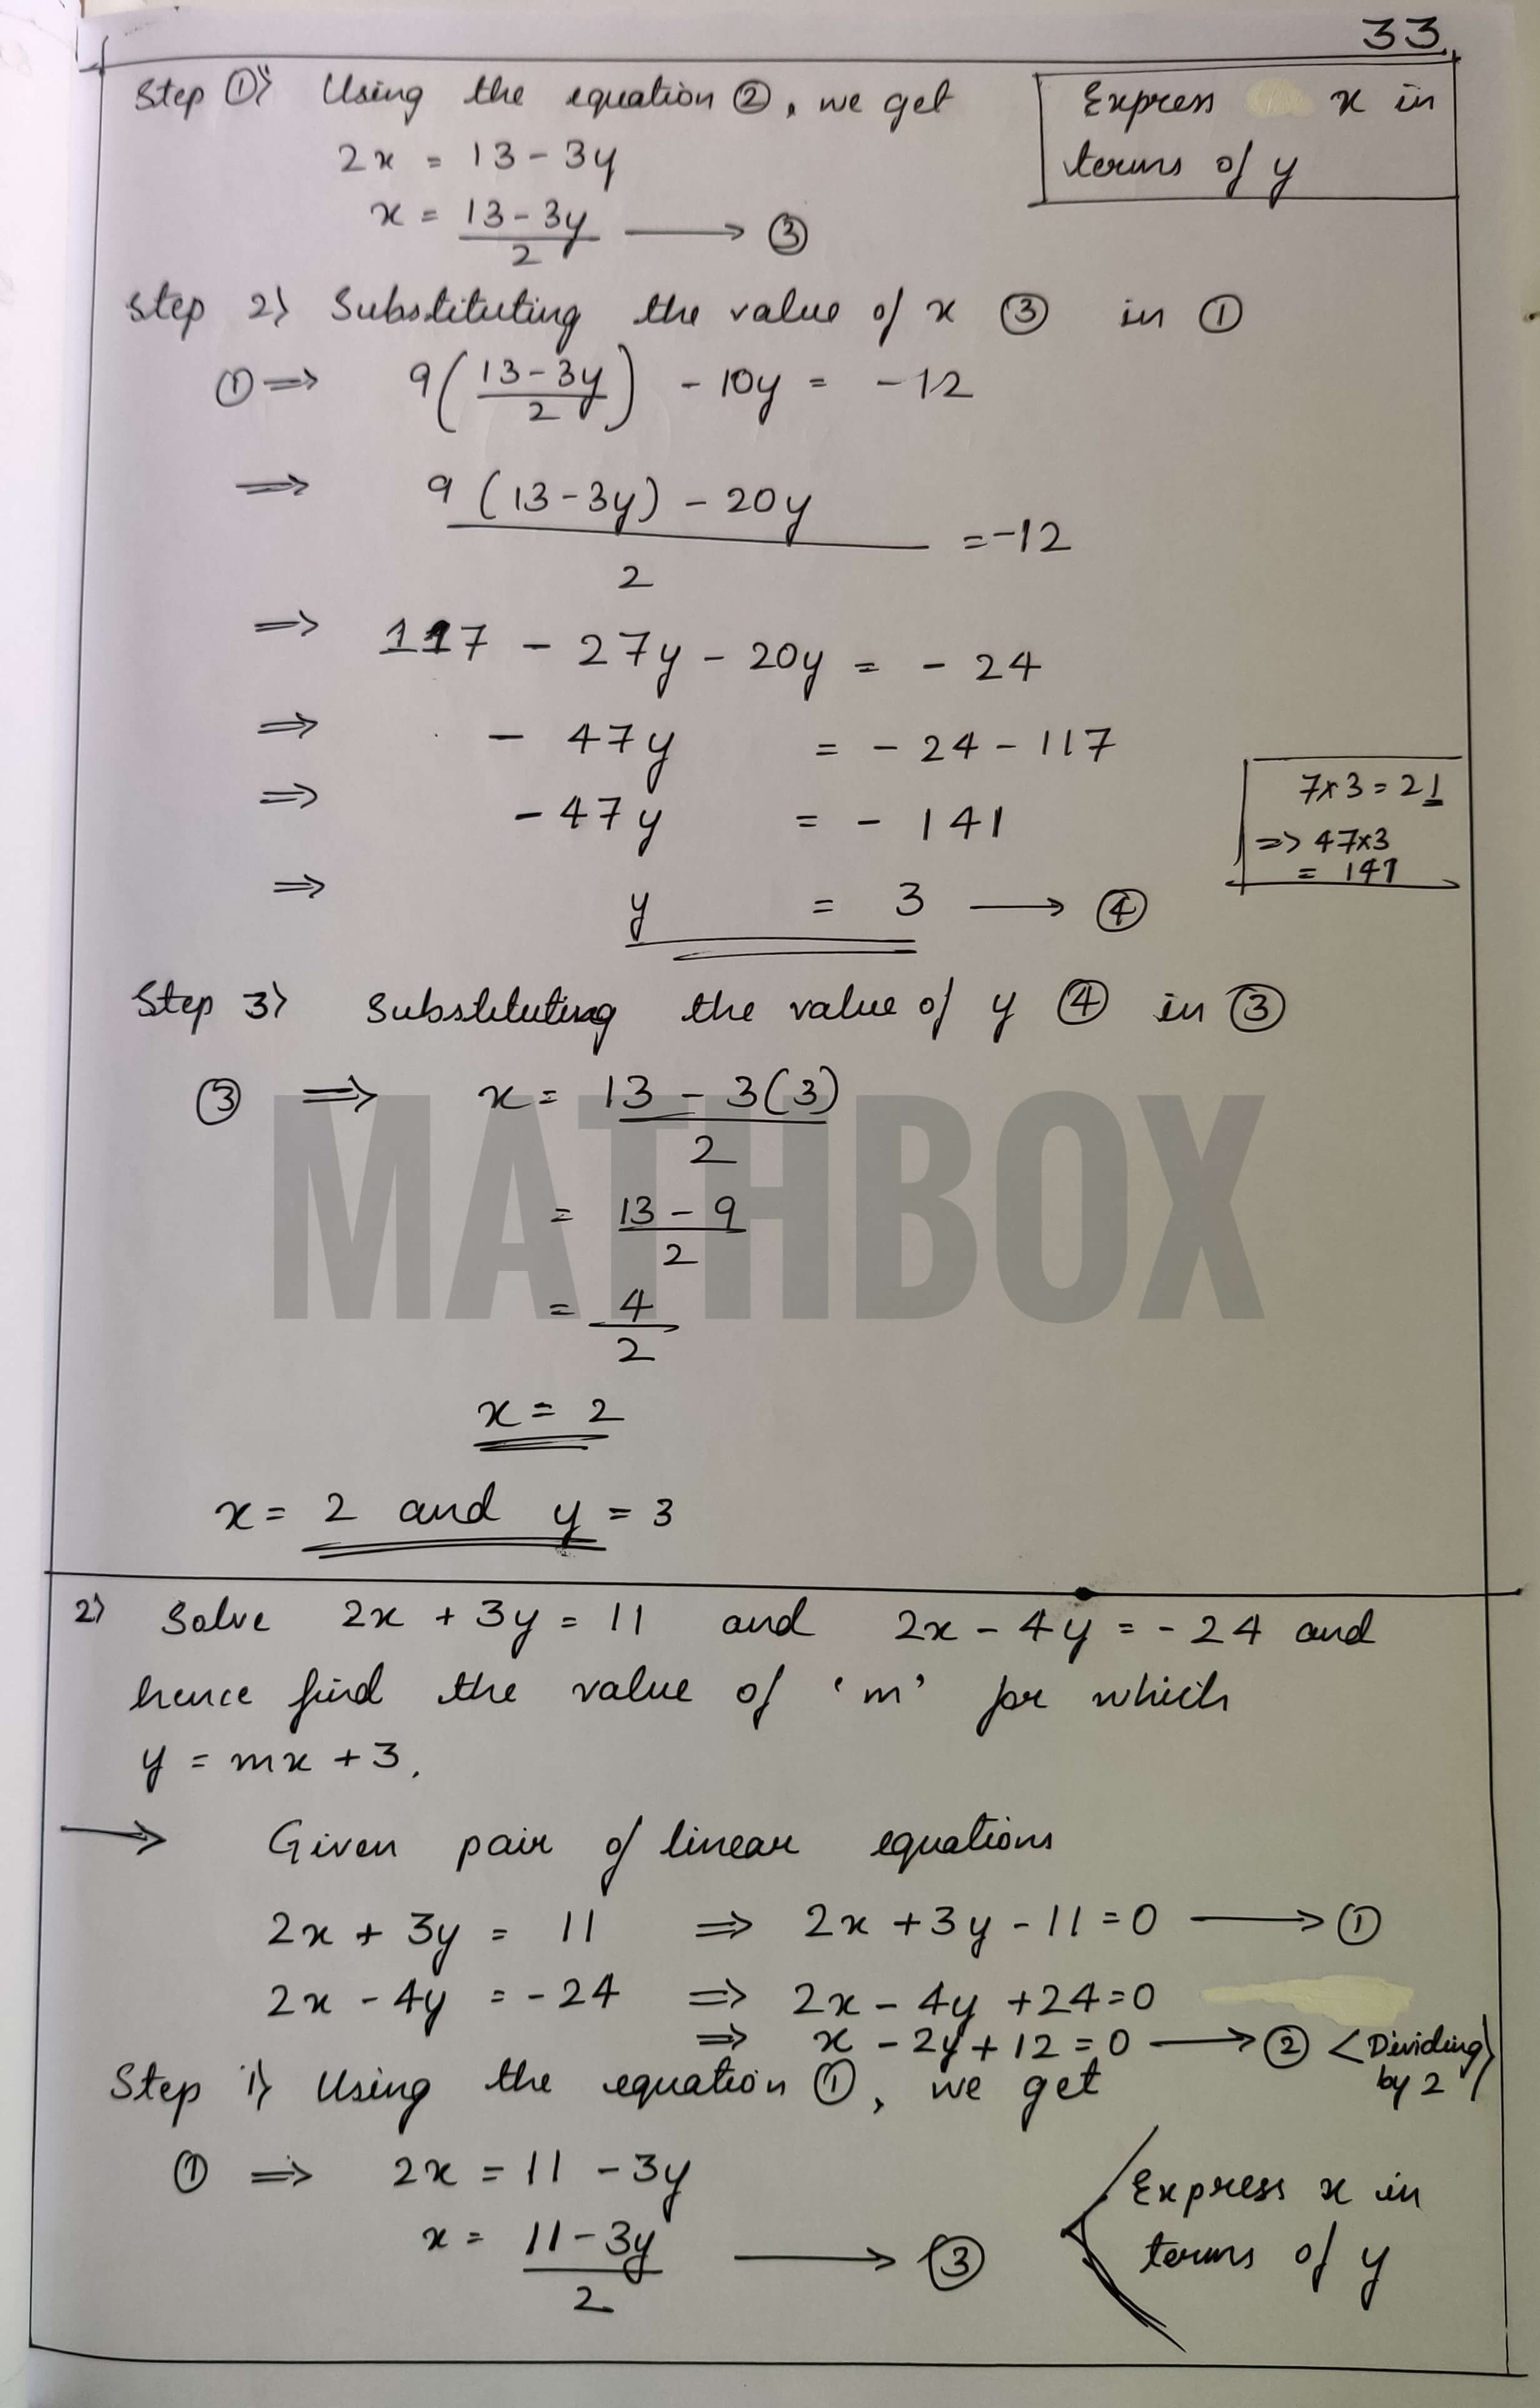 33
Step ①> Using the equation ②, we get
Express x in
terms of y
2x = 13 - 3y
x = (13 - 3y)/2 ⟶ ③
Step 2> Substituting the value of x ③ in ①
① ⇒ 9((13-3y)/2) - 10y = -12
⇒ (9(13-3y) - 20y)/2 = -12
⇒ 117 - 27y - 20y = - 24
⇒ - 47y = - 24 - 117
⇒ - 47y = - 141
7x3 = 21
=> 47x3
= 141
⇒ y = 3 ⟶ ④
Step 3> Substituting the value of y ④ in ③
③ ⇒ x = (13 - 3(3))/2
= (13 - 9)/2
= 4/2
x = 2
x = 2 and y = 3
MATHBOX
2> Solve 2x + 3y = 11 and 2x - 4y = - 24 and
hence find the value of 'm' for which
y = mx + 3.
⟶ Given pair of linear equations
2x + 3y = 11 ⇒ 2x + 3y - 11 = 0 ⟶ ①
2x - 4y = - 24 ⇒ 2x - 4y + 24 = 0
⇒ x - 2y + 12 = 0 ⟶ ② <Dividing
by 2>
Step 1> Using the equation ①, we get
① ⇒ 2x = 11 - 3y
x = (11 - 3y)/2 ⟶ ③
Express x in
terms of y